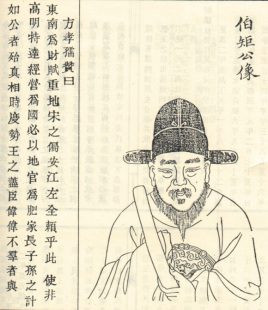 伯矩公像
方孝孺贊曰
東南為財賦重地宋之偏安江左全賴乎此使非
高明特達經營為國必以地官為肥家長子孫之計
如公者殆真相時慶勢王之藎臣偉偉不羣者與